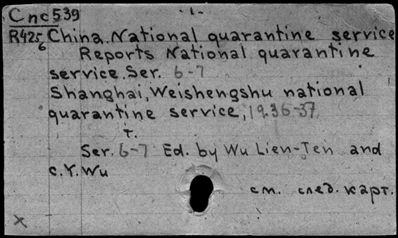 Cnc539
R425 China. National quarantine service
6 Reports National quarantine
service. Ser. 6-7
Shanghai, Weishengshu national
quarantine service, 1936-37.
т.
Ser. 6-7 Ed. by Wu Lien-Teh and
C.Y. Wu
см. след. карт.